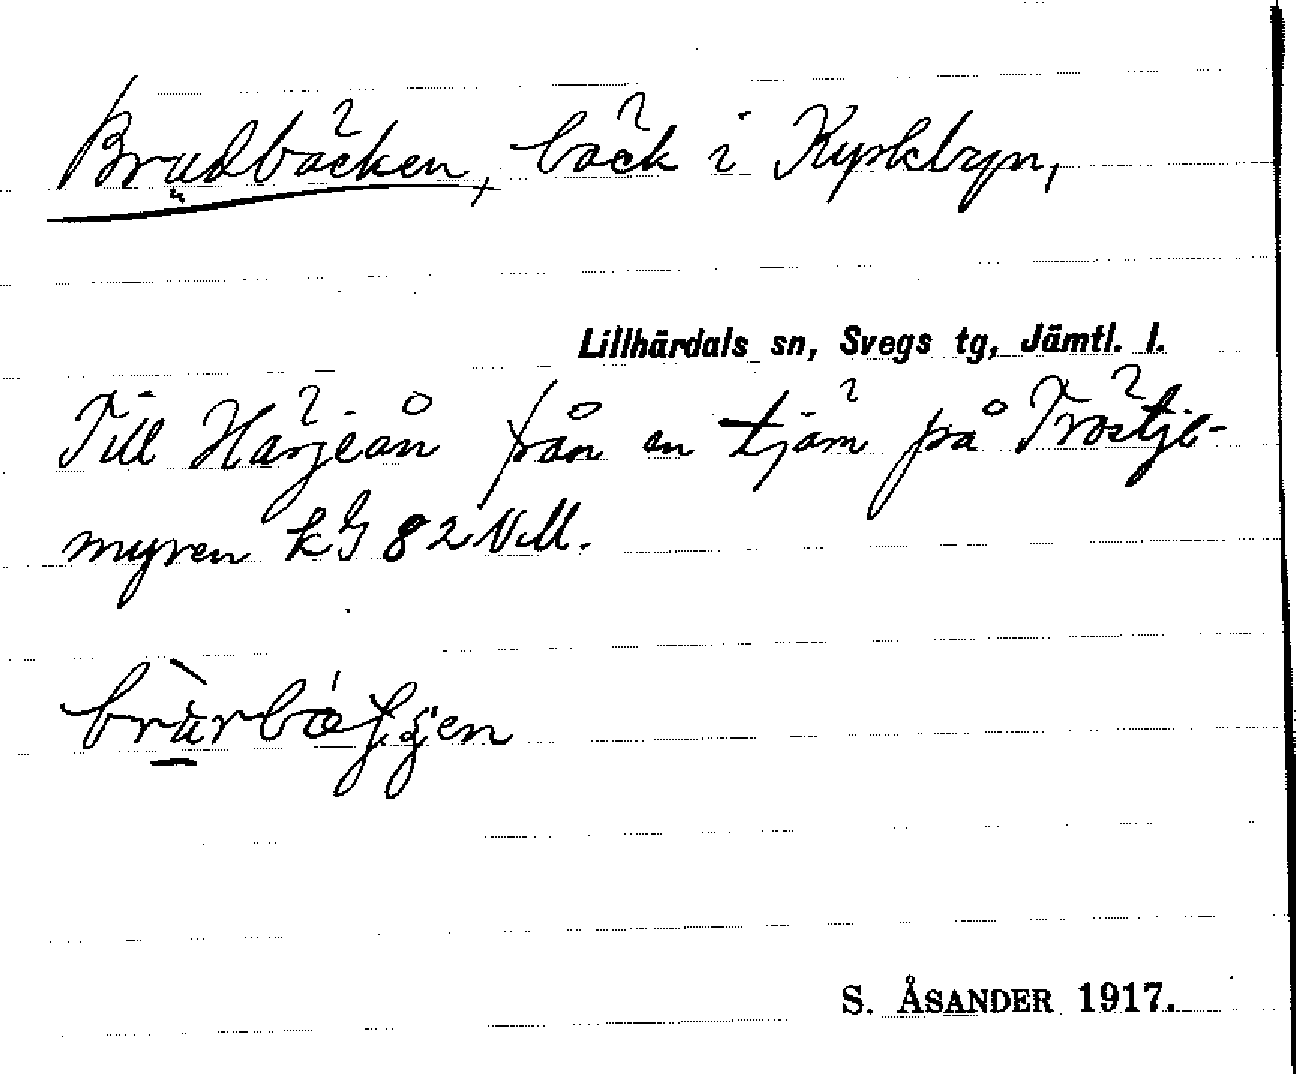 Brudbäcken, bäck i Kyrkbyn,
Lillhärdals sn, Svegs tg, Jämtl. l.
Till Härjeån från en tjärn på Trätje-
myren kg 82 NM.
S. ÅSANDER 1917.